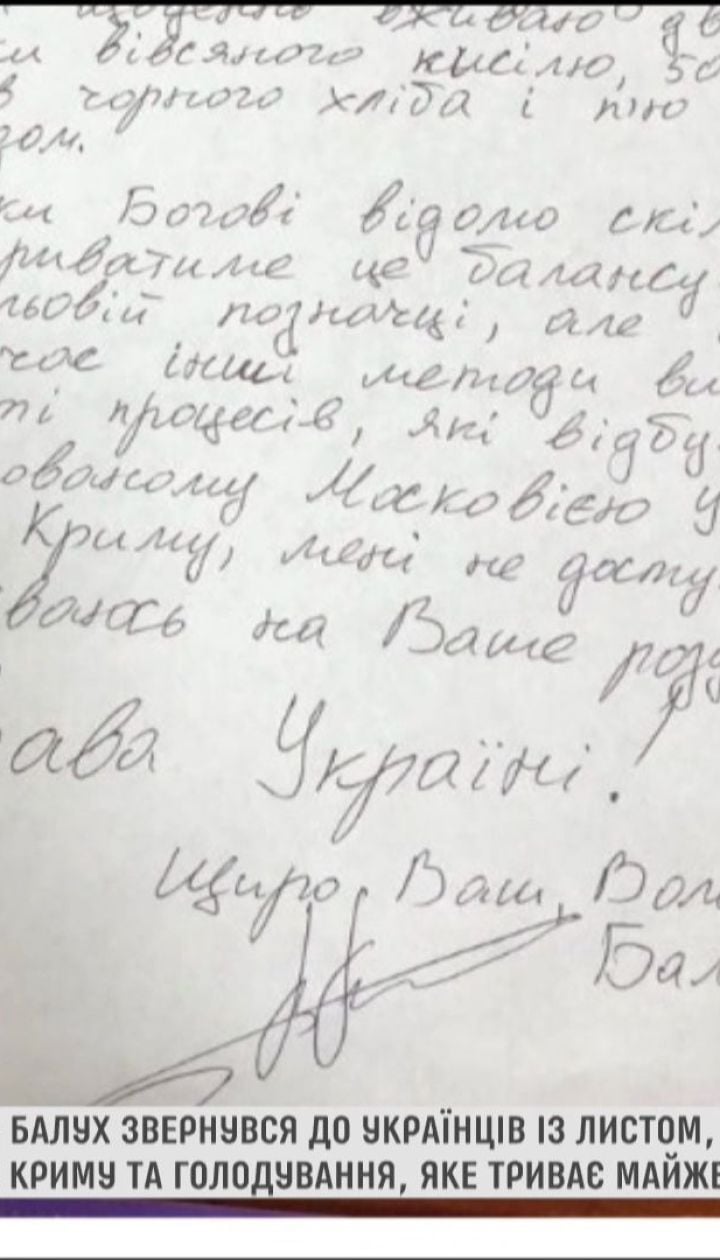 щоденно вживаю дв
ки вівсяного кисілю, 50
в чорного хліба і п'ю
зом.
ки Богові відомо скіл
риватиме це балансу
льовій позначці, але
чає інші методи ви
ті процесів, які відбу
ованому Московією У
Криму, мені не досту
ваюсь на Ваше розу
ава Україні!
Щиро Ваш, Вол
Бал
БАЛУХ ЗВЕРНУВСЯ ДО УКРАЇНЦІВ ІЗ ЛИСТОМ,
КРИМУ ТА ГОЛОДУВАННЯ, ЯКЕ ТРИВАЄ МАЙЖЕ